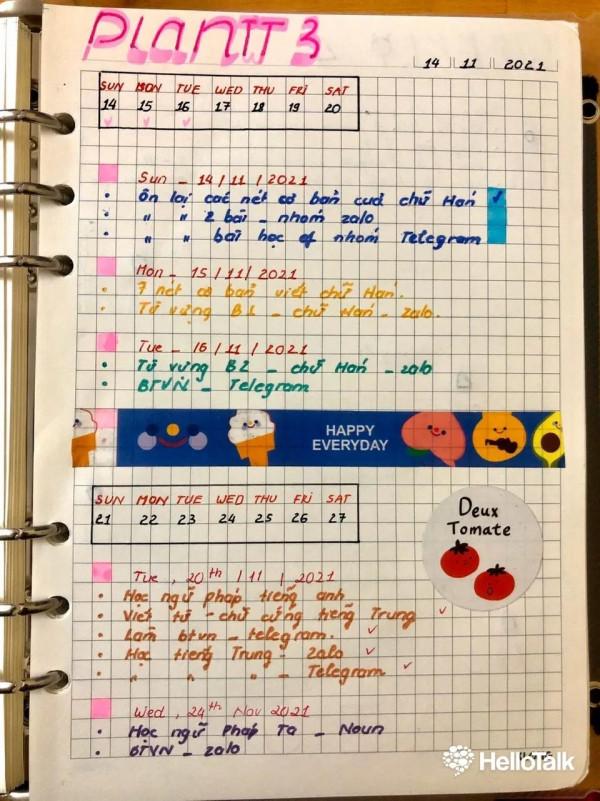 PlANIT 3
14 11 2021
SUN MON TUE WED THU FRI SAT
14 15 16 17 18 19 20
Sun - 14/11/2021
• Ôn lại các nét cơ bản của chữ Hán ✓
• " " 2 bài - nhóm zalo
• " " bài học of nhóm Telegram
Mon - 15/11/2021
• 7 nét cơ bản viết chữ Hán.
• Từ vựng B1 - chữ Hán - zalo.
Tue - 16/11/2021
• Từ vựng B2 - chữ Hán - zalo
• BTVN - Telegram
HAPPY
EVERYDAY
SUN MON TUE WED THU FRI SAT
21 22 23 24 25 26 27
Deux
Tomate
Tue, 20th/11/2021
• Học ngữ pháp tiếng anh
• Viết từ - chữ cứng tiếng Trung ✓
• Làm btvn - telegram. ✓
• Học tiếng Trung - zalo ✓
• " " " - Telegram ✓
Wed, 24th Nov 2021
• Học ngữ pháp TA - Noun
• BTVN - zalo
HelloTalk